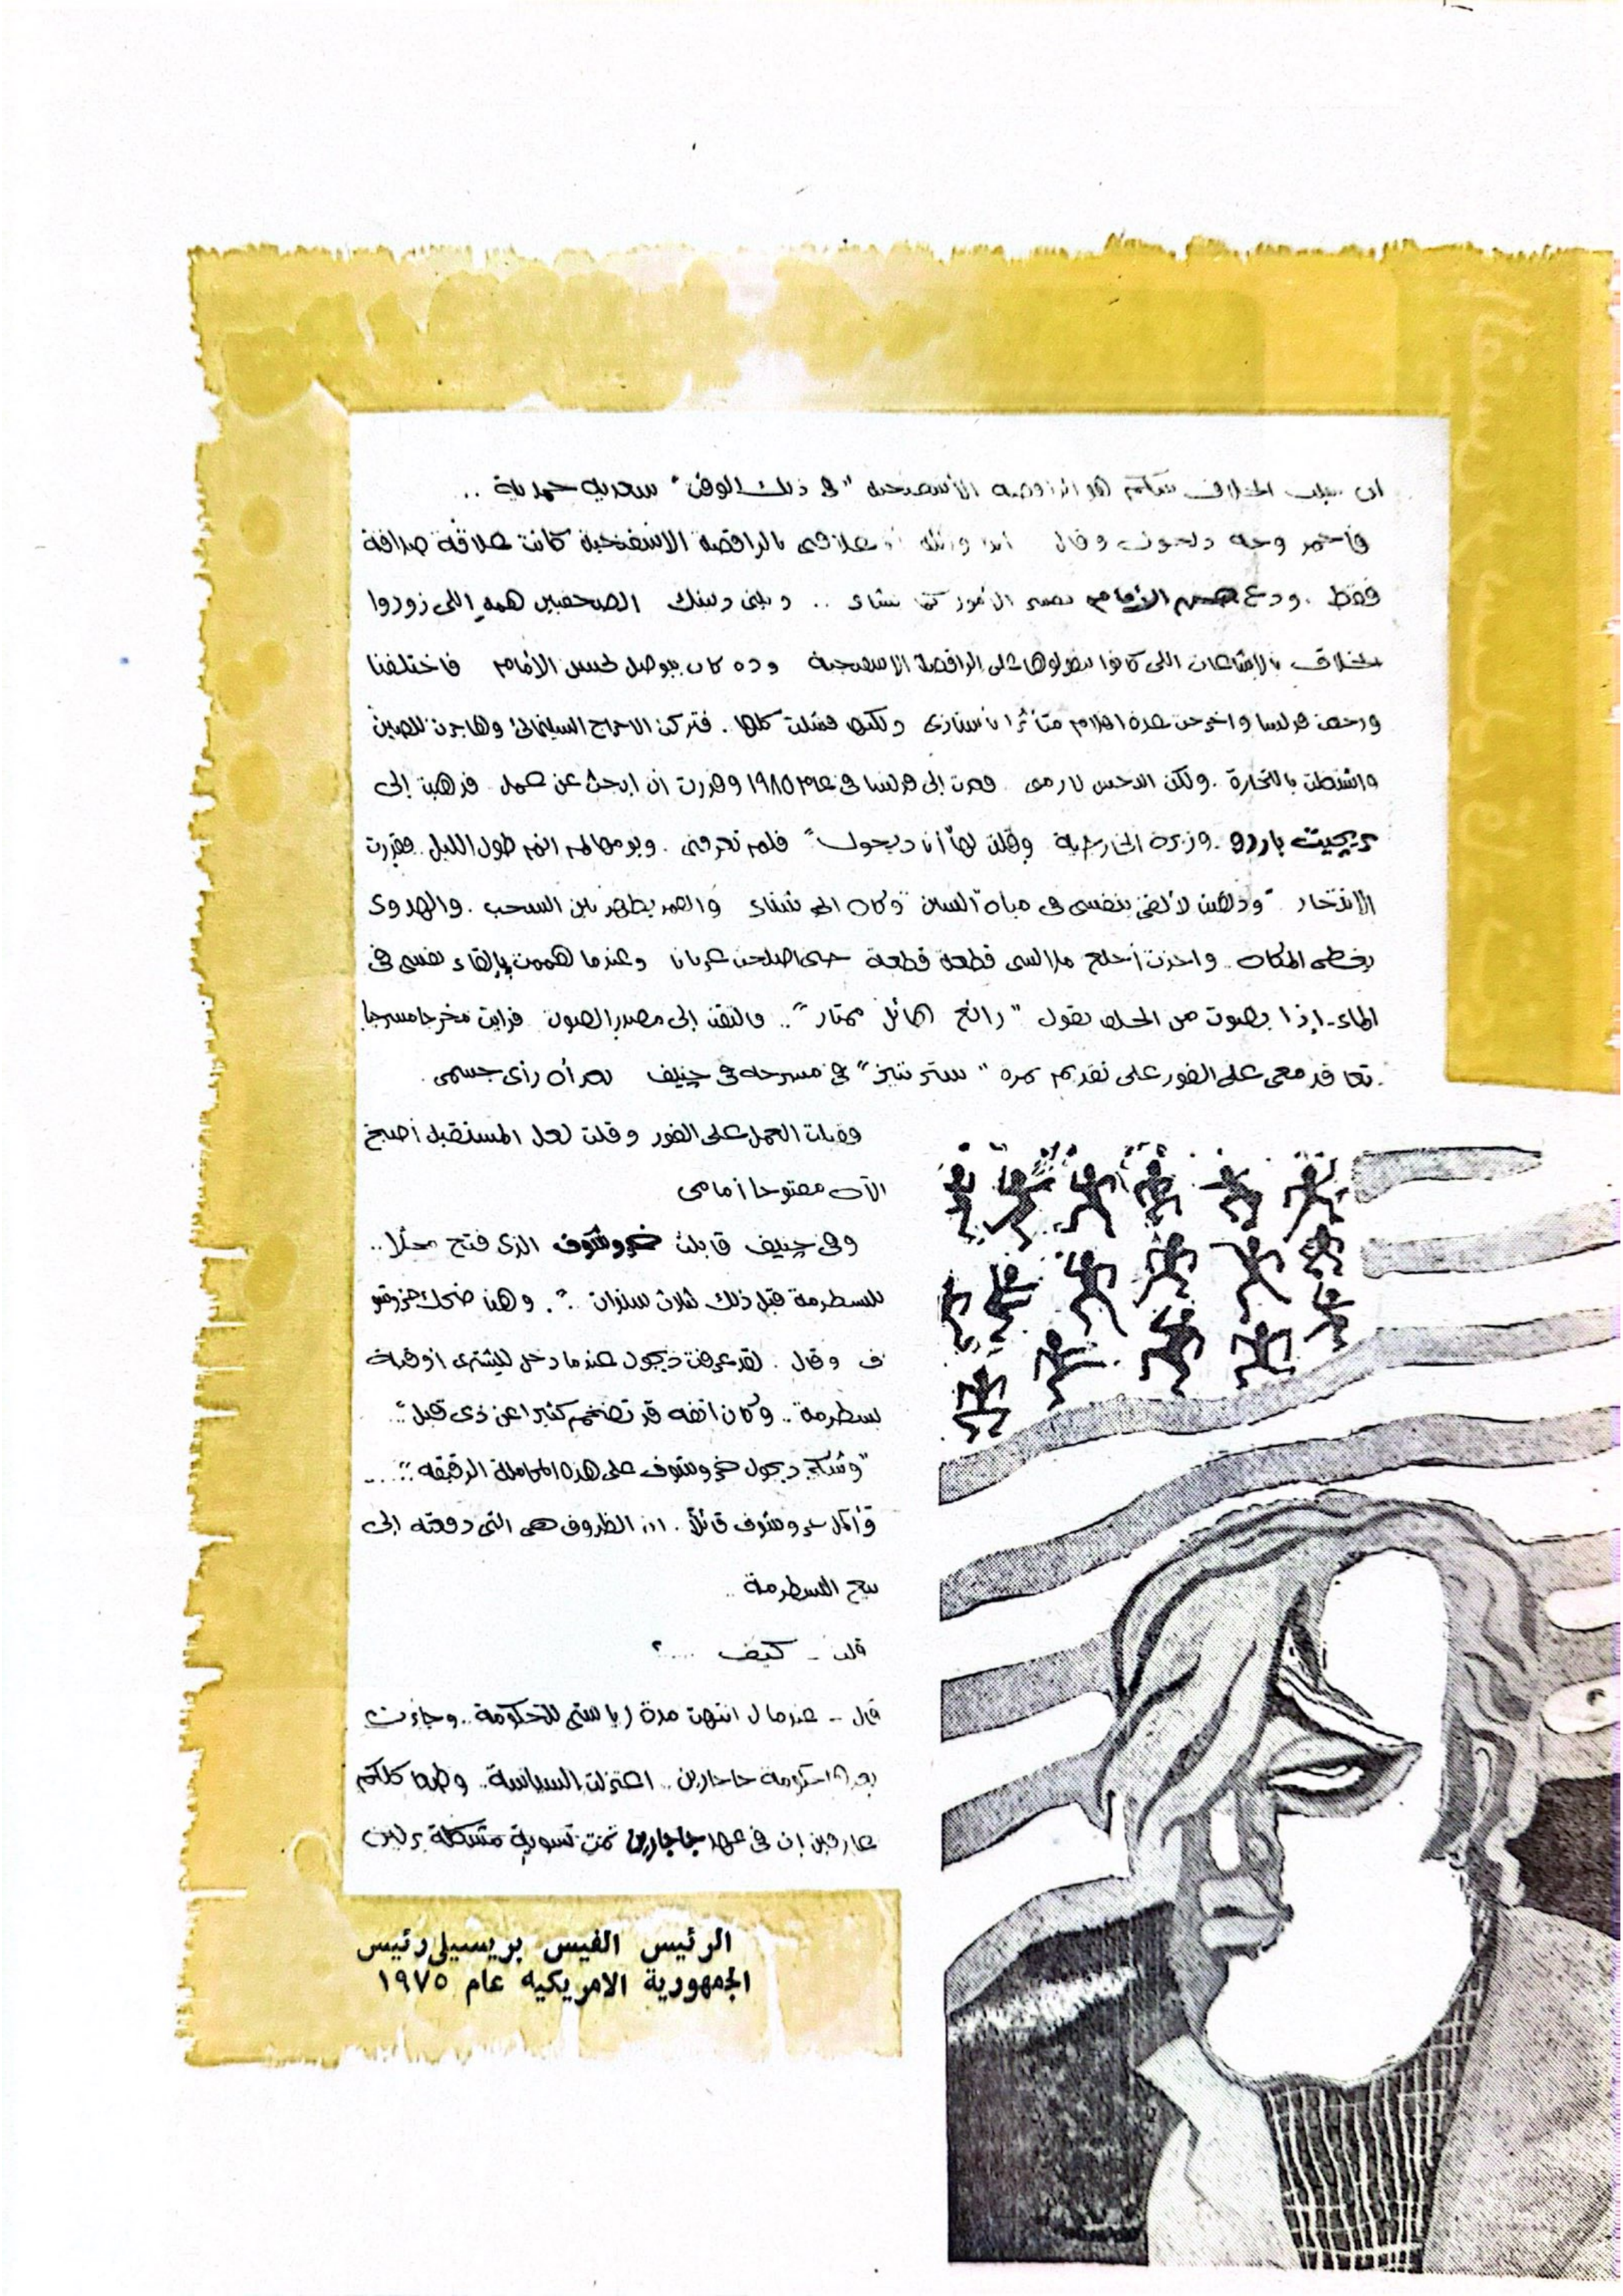 ان سبب الخلاف بينكم هو الراقصة الأسفنجية "فى ذلك الوقت" سعدية حمدية ..
فأحمر وجه ديجول وقال أبدا والله علاقتى بالراقصة الاسفنجية كانت علاقة صداقة
فقط . ودع حسن الأمام يفسر الأمور كما يشاء .. وبينى وبينك الصحفيين همه اللى زودوا
الخلاف بالاشاعات اللى كانوا بيقولوها على الراقصة الاسفنجية وده كان بيوصل لحسن الأمام فاختلفنا
ورحت فرنسا واخرجت عدة افلام متأثرا بأستاذى ولكنها فشلت كلها . فتركت الاخراج السينمائى وهاجرت للصين
واشتغلت بالتجارة . ولكن النحس لازمنى فعدت إلى فرنسا فى عام ١٩٨٥ وقررت أن ابحث عن عمل فذهبت إلى
بريجيت باردو وزيرة الخارجية وقلت لها "أنا ديجول" فلم تعرفنى . ويومها لم انم طول الليل فقررت
الانتحار وذهبت لألقى بنفسى فى مياه السين وكان الجو شتاء والقمر يظهر بين السحب . والهدوء
يغطى المكان .. واخذت أخلع ملابسى قطعة قطعة حتى اصبحت عريانا وعندما هممت بإلقاء نفسى فى
الماء - إذا بصوت من الخلف يقول "رائع هائل ممتاز" .. فالتفت إلى مصدر الصوت فرايت مخرجا مسرحيا
تعاقد معى على الفور على تقديم نمرة "ستربتيز" فى مسرحه فى چنيف بعد أن رأى جسمى .
وقبلت العمل على الفور وقلت لعل المستقبل أصبح
الآن مفتوحا أمامى
وفى چنيف قابلت خروشوف الذى فتح محلا ..
للبسطرمة قبل ذلك بثلاث سنوات .. وهنا ضحك خروشو
ف وقال . لقد عرفت ديجول عندما دخل ليشترى اوقية
بسطرمة .. وكان انفه قد تضخم كثيرا عن ذى قبل" ..
"وشكر ديجول خروشوف على هذه المجاملة الرقيقه" ....
وأكمل خروشوف قائلاً . ان الظروف هى التى دفعته إلى
بيع البسطرمة ..
قلت - كيف .... ؟
قال - عندما انتهت مدة رياستى للحكومة .. وجاءت
بعدها حكومة جاجارين .. اعتزلت السياسة .. وطبعا كلكم
عارفين ان فى عهد جاجارين تمت تسوية مشكلة برلين
الرئيس الفيس بريسيلى رئيس
الجمهورية الامريكيه عام ١٩٧٥